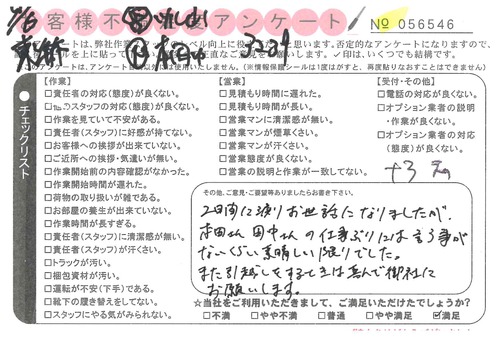 7/6
客様不満足度アンケート
No 056546
京都
アンケートは、弊社作業レベル向上に役
と思います。否定的なアンケートになりますので、
ルを上に貼って
直なご意見をお願いします。✓印は、いくつでも結構です。
このアンケートは、アンケート
以外には使用いたしません。(※情報保護シールは1度はがすと、再度貼りなおすことはできません)
チェックリスト
【作業】
□責任者の対応(態度)が良くない。
□スタッフの対応(態度)が良くない。
□作業を見ていて不安がある。
□責任者(スタッフ)に好感が持てない。
□お客様への挨拶が出来ていない。
□ご近所への挨拶・気遣いが無い。
□作業開始前の内容確認がなかった。
□作業開始時間が遅れた。
□荷物の取り扱いが雑である。
□お部屋の養生が出来ていない。
□作業時間が長すぎる。
□責任者(スタッフ)に清潔感が無い。
□責任者(スタッフ)が汗くさい。
□トラックが汚い。
□梱包資材が汚い。
□運転が不安(下手)である。
□靴下の履き替えをしてない。
□スタッフにやる気がみられない。
【営業】
□見積もり時間に遅れた。
□見積もり時間が長い。
□営業マンに清潔感が無い。
□営業マンが煙草くさい。
□営業マンが汗くさい。
□営業態度が良くない。
□営業の説明と作業が一致してない。
【受付・その他】
□電話の対応が良くない。
□オプション業者の説明
・作業が良くない。
□オプション業者の対応
(態度)が良くない。
その他、ご意見・ご要望等ありましたらお書き下さい。
2日間に渡りお世話になりましたが、
本田さん 田中さんの仕事ぶりには言う事が
ないくらい素晴しい限りでした。
また引越しをするときは喜んで御社に
お願いします。
☆当社をご利用いただきまして、ご満足いただけたでしょうか?
□不満 □やや不満 □普通 □やや満足 ☑満足